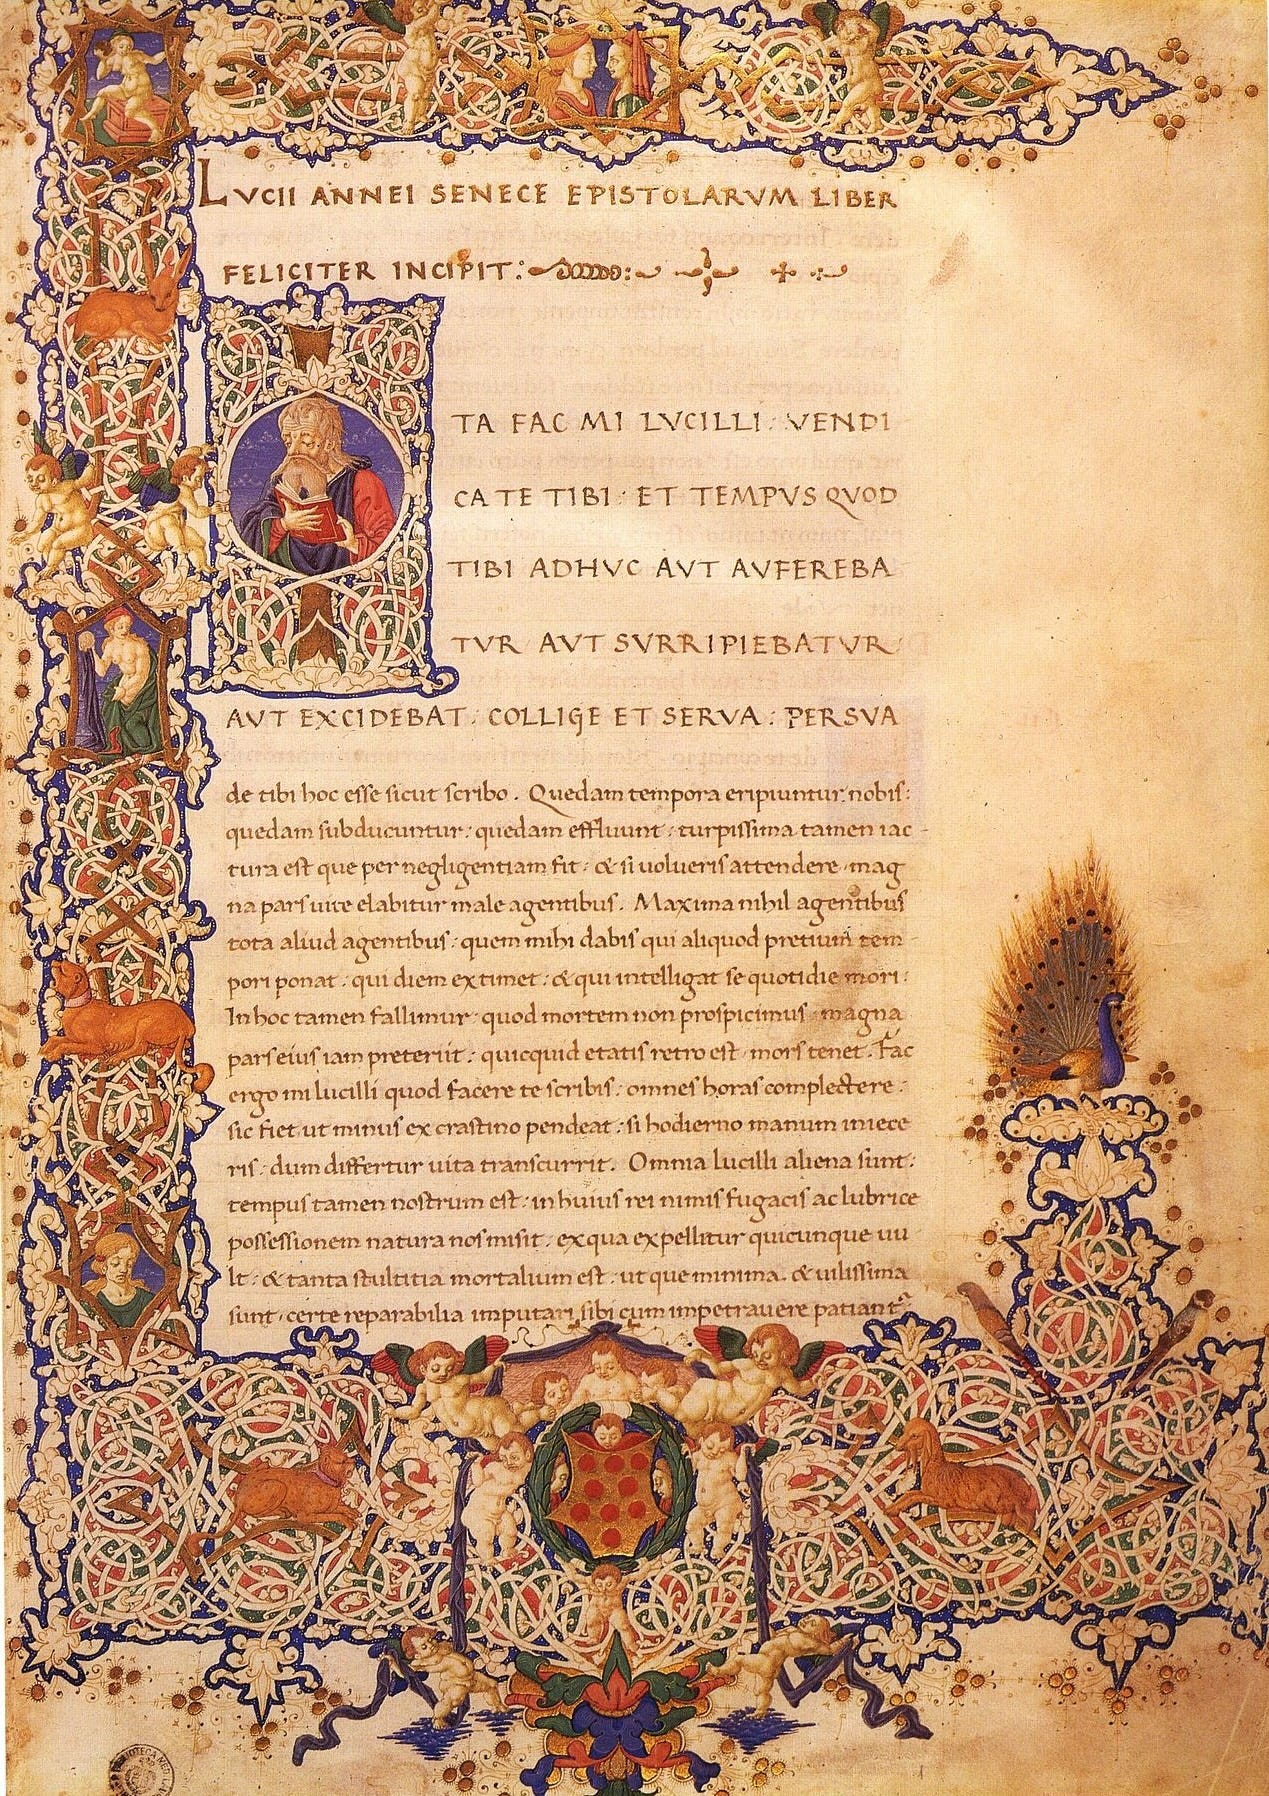 LVCII ANNEI SENECE EPISTOLARVM LIBER
FELICITER INCIPIT:
ITA FAC MI LVCILLI: VENDI
CA TE TIBI: ET TEMPVS QVOD
TIBI ADHVC AVT AVFEREBA
TVR AVT SVRRIPIEBATVR
AVT EXCIDEBAT: COLLIGE ET SERVA: PERSVA
de tibi hoc esse sicut scribo. Quedam tempora eripiuntur nobis:
quedam subducuntur: quedam effluunt: turpissima tamen iac
tura est que per negligentiam fit: & si uolueris attendere mag
na pars uite elabitur male agentibus. Maxima nihil agentibus
tota aliud agentibus: quem mihi dabis qui aliquod pretium tem
pori ponat: qui diem extimet: & qui intelligat se quotidie mori:
In hoc tamen fallimur: quod mortem non prospicimus magna
pars eius iam preteriit: quicquid etatis retro est mors tenet. Fac
ergo mi lucilli quod facere te scribis: omnes horas complectere:
sic fiet ut minus ex crastino pendeat: si hodierno manum iniece
ris: dum differtur uita transcurrit. Omnia lucilli aliena sunt:
tempus tamen nostrum est: in huius rei nimis fugacis ac lubrice
possessionem natura nos misit: ex qua expellitur quicunque uu
lt: & tanta stultitia mortalium est: ut que minima & uilissima
sunt: certe reparabilia imputari sibi cum impetrauere patiantr